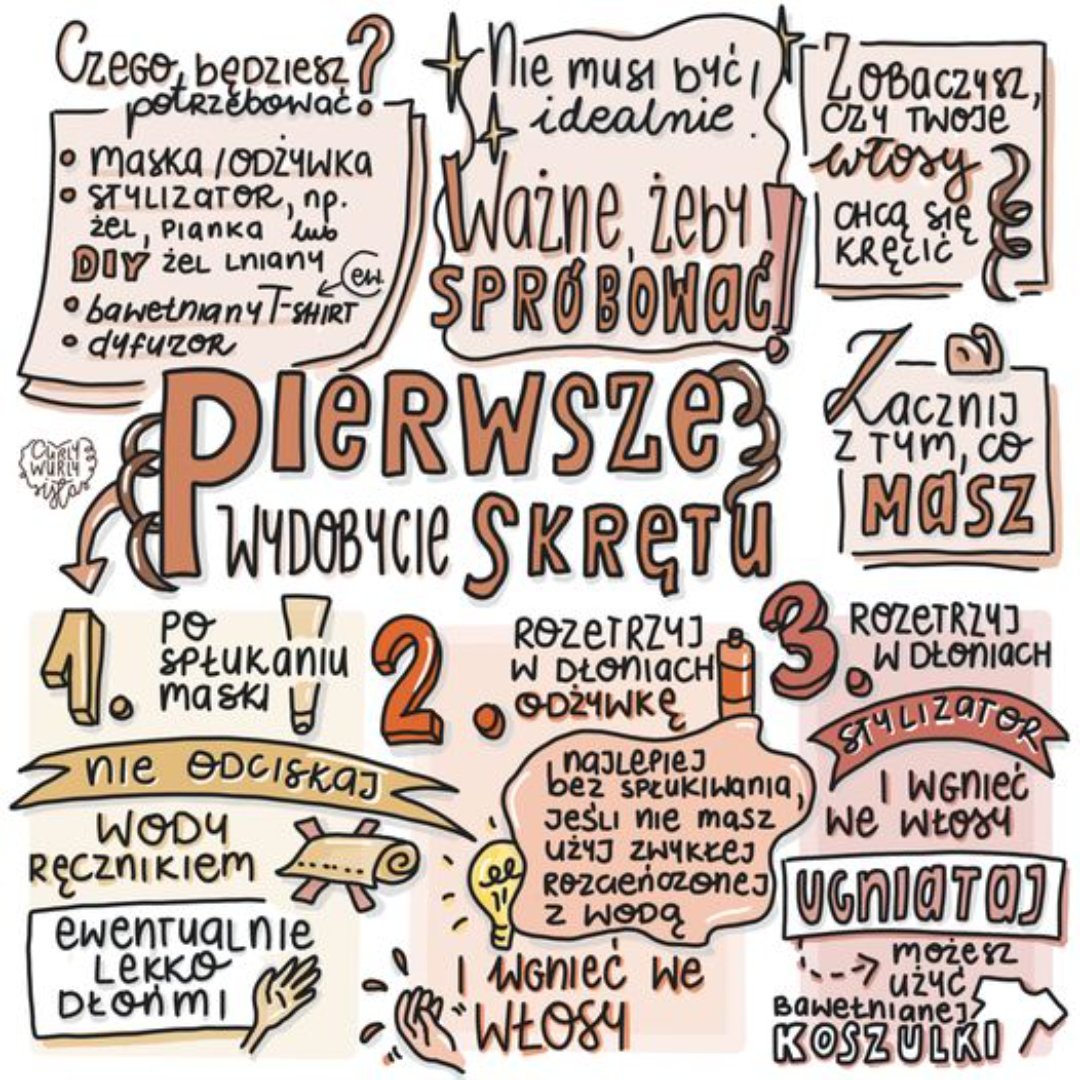 Czego będziesz
potrzebować?
• maska / odżywka
• stylizator, np.
żel, pianka lub
DIY żel lniany
ew.
• bawełniany T-shirt
• dyfuzor
Nie musi być
idealnie.
Ważne, żeby
SPRÓBOWAĆ!
Zobaczysz,
czy twoje
włosy
chcą się
kręcić
Zacznij
z tym, co
masz
Pierwsze
wydobycie skrętu
Curly
Wurly
sistas
1. po
spłukaniu
maski!
nie odciskaj
wody
ręcznikiem
ewentualnie
lekko
dłońmi
2. rozetrzyj
w dłoniach
odżywkę
najlepiej
bez spłukiwania,
jeśli nie masz
użyj zwykłej
rozcieńczonej
z wodą
i wgnieć we
włosy
3. rozetrzyj
w dłoniach
stylizator
i wgnieć
we włosy
ugniataj
możesz
użyć
bawełnianej
koszulki